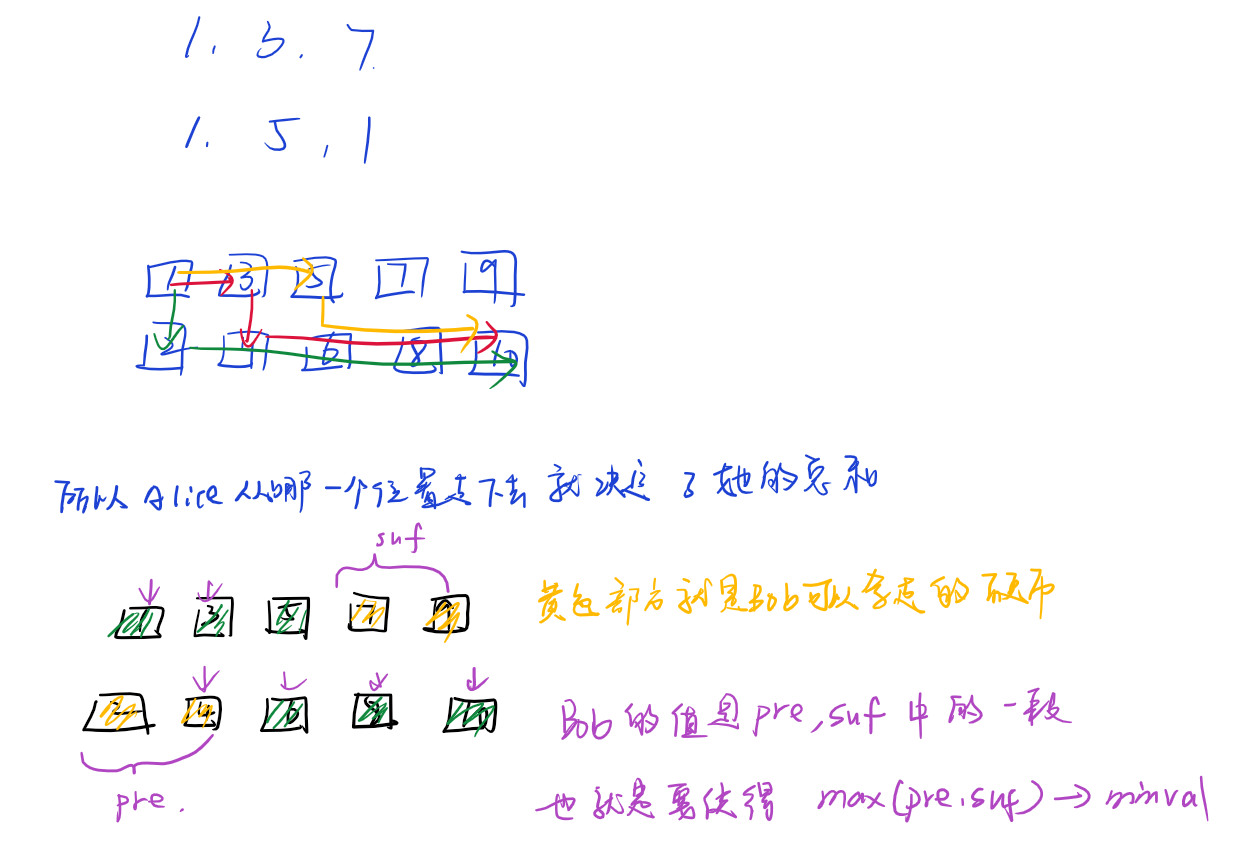 1. 3. 7
1. 5, 1
1 3 5 7 9
2 6 8 10
所以 Alice 从哪一个位置走下去 就决定了她的总和
suf
1 3 5 7 9
黄色部分就是Bob可以拿走的硬币
2 4 6 8 10
Bob的值是pre,suf中的一段
pre.
也就是要使得 max(pre.suf) → minval